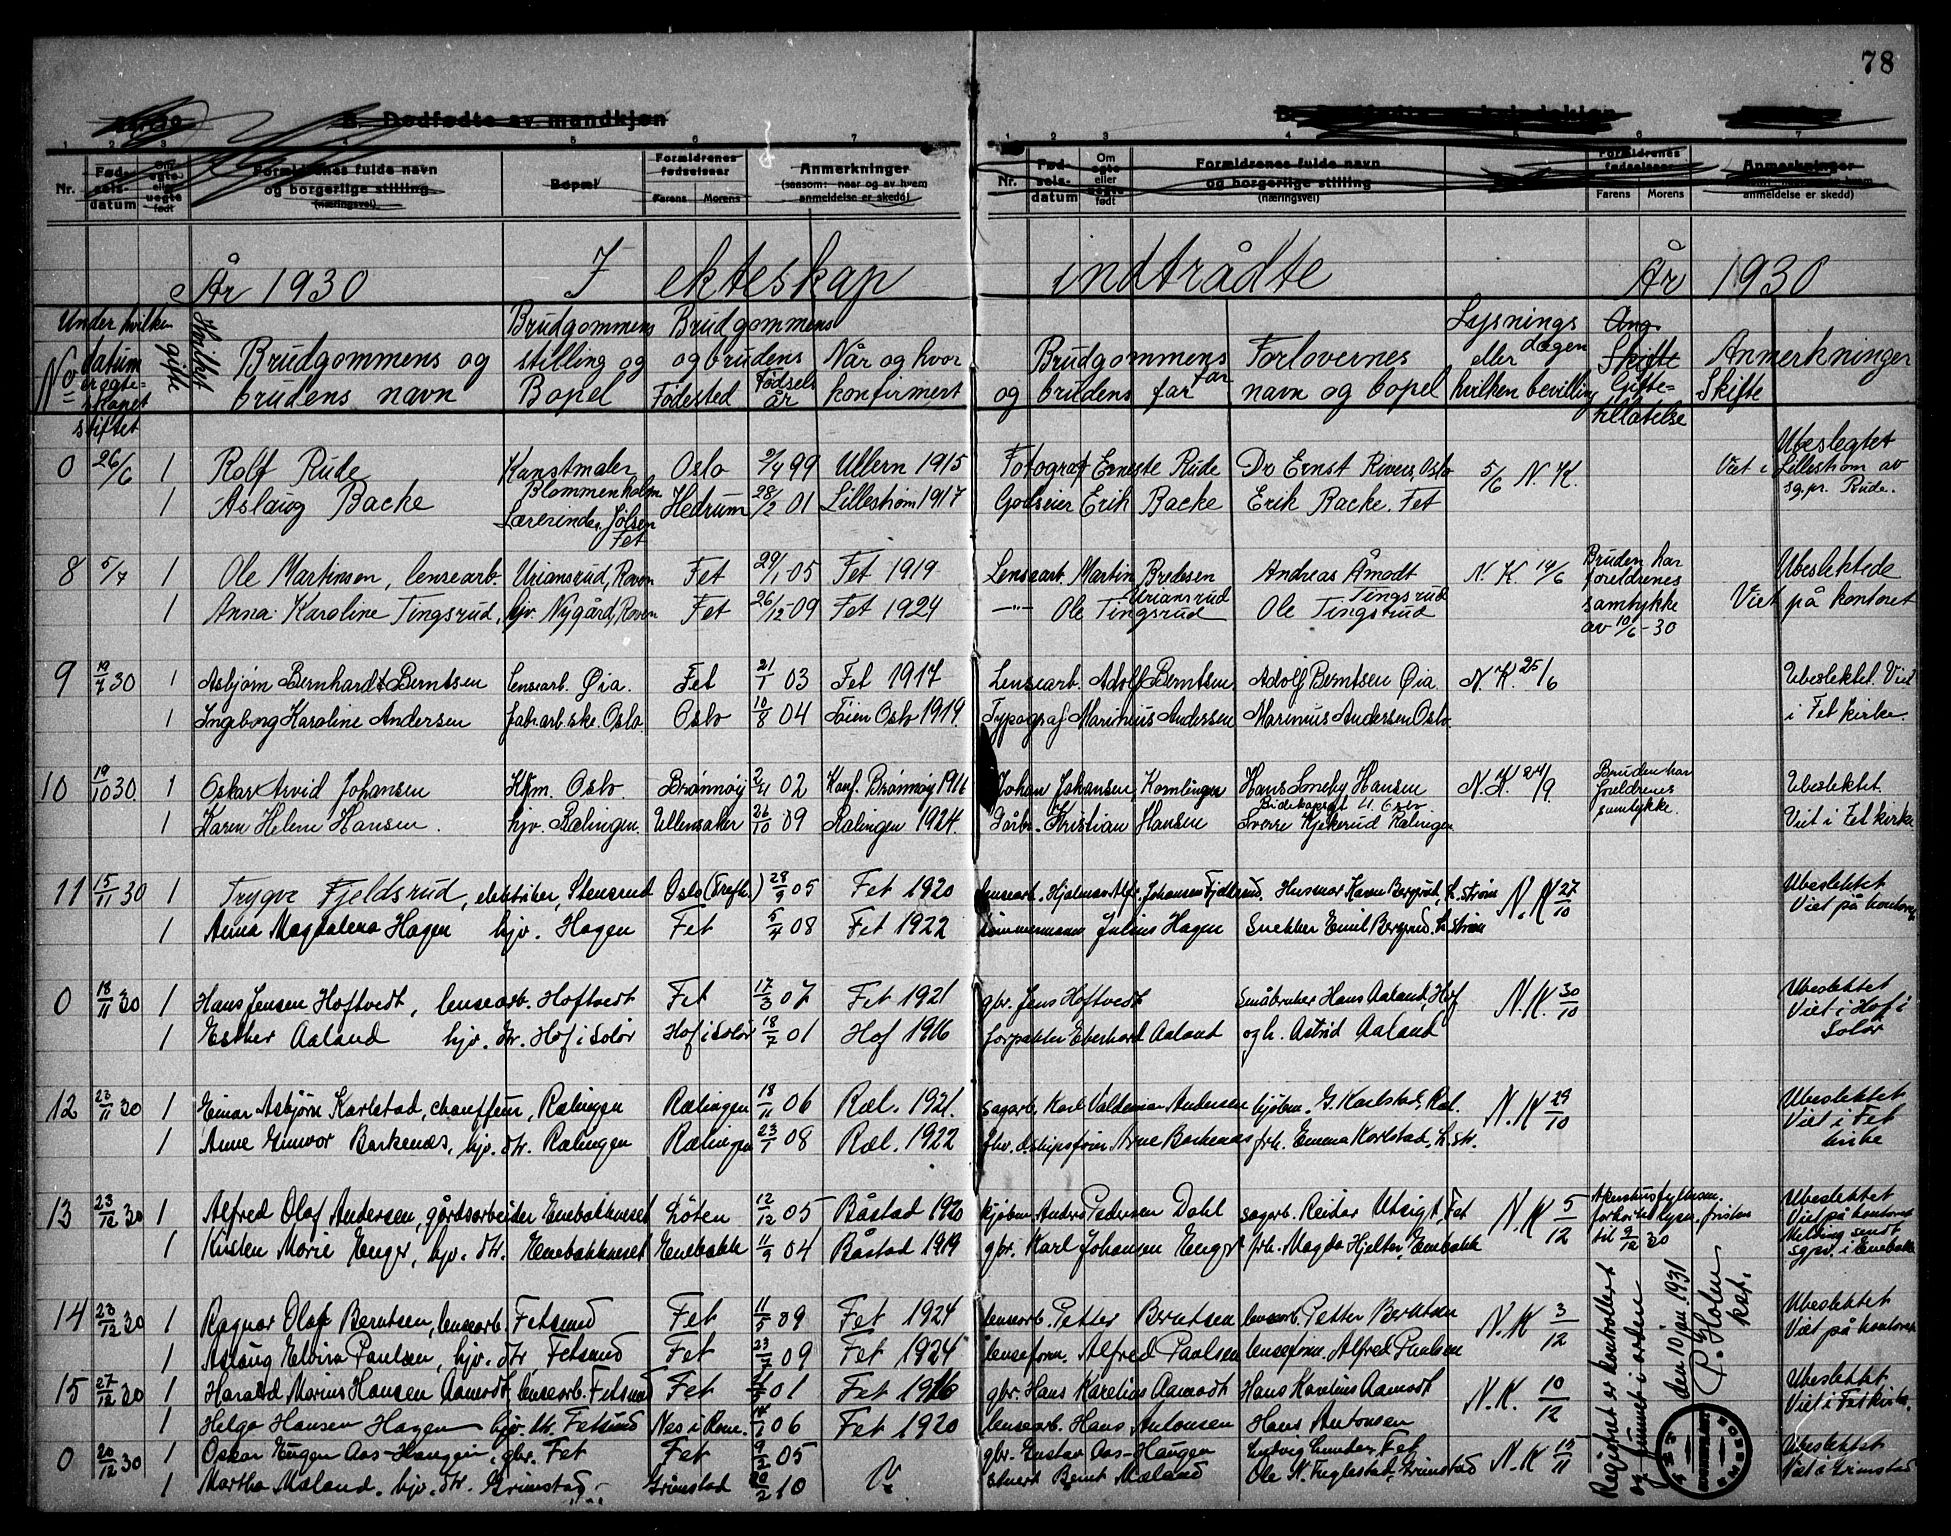 78
B. Dødfødte av mandkjøn
1 2 3 4 5 6 7
Nr. Fød-selsdatum Om egte eller uegte født Forældrenes fulde navn og borgerlige stilling (næringsvei) Bopæl Forældrenes fødselsaar Farens Morens Anmerkninger (saasom: naar og av hvem anmeldelse er skedd)
1 2 3 4 5 6 7
Nr. Fød-selsdatum Om egte eller uegte født Forældrenes fulde navn og borgerlige stilling (næringsvei) Forældrenes fødselsaar Farens Morens Anmerkninger anmeldelse er skedd)
År 1930 I ekteskap indtrådte År 1930
No Under hvilken datum er egteskapet stiftet Hvilket gifte Brudgommens og brudens navn Brudgommens stilling og Bopel Brudgommens og brudens Fødested Fødselsår Når og hvor konfirmert Brudgommens far og brudens far Forlovernes navn og bopel Lysnings dagen eller hvilken bevilling Ang. Skifte Giftetillatelse Skifte Anmerkninger
0 26/6 1 Rolf Rude Kunstmaler Blommenholm Oslo 2/4 99 Ullern 1915 Fotograf Erneste Rude Dr Ernst Oslo 5/6 N.K. Ubeslegtet Viet i Lillestrøm av sg.pr. Rude.
1 Aslaug Backe Lærerinde, Jølsen Fet Hedrum 28/2 01 Lillestrøm 1917 Godseier Erik Backe Erik Backe. Fet
8 5/7 1 Ole Martinsen, lensearb. Uriansrud, Roven Fet 29/1 05 Fet 1919 Lensearb. Martin Bredesen Uriansrud Andreas Åmodt N.K. 19/6 Bruden har foreldrenes samtykke av 10/6-30 Ubeslektede Viet på kontoret
1 Anna Karoline Tingsrud, hjv. Nygård, Roven Fet 26/12 09 Fet 1924 —"— Ole Tingsrud Ole Tingsrud Tingsrud
9 19/7 30 1 Asbjørn Bernhardt Berntsen lensearb. Øia. Fet 21/1 03 Fet 1917 Lensearb. Adolf Berntsen Adolf Berntsen Øia N.K. 25/6 Ubeslektet. Viet i Fet kirke.
1 Ingeborg Karoline Andersen fab.arb.ske. Oslo Oslo 10/8 04 Tøien Oslo 1919 Typograf Marinius Andersen Marinus Andersen Oslo
10 19/10 30. 1 Oskar Arvid Johansen Oslo. Brønnøy 02 Konf. Brønnøy 1916 Johan Johansen, Hans Hansen Oslo N.K. 24/9. Bruden har foreldrenes samtykke. Ubeslektet.
1 Karen Helene Hansen. hjv. Rælingen. Ullensaker 26/10 09 Rælingen 1924. Gårbr. Kristian Hansen Sverre Kjekerud Rælingen Viet i Fet kirke
11 15/11 30 1 Trygve Fjeldsrud, elektriker, Stensrud Oslo (Trefh.) 28/9 05 Fet 1920 lensearb. Hjalmar Alfr. Johansen Fjeldsrud. L.strøm N.K 27/10 Ubeslektet Viet på kontoret
1 Anna Magdalena Hagen hjv. Hagen Fet 5/4 08 Fet 1922 tømmermann Julius Hagen Snekker Emil Bergerud. L.strøm
0 18/11 30 1 Hans Jensen Hoftvedt, lensearb. Hoftvedt Fet 17/3 07 Fet 1921 gbr. Jens Hoftvedt Småbruker Hans Aaland, Hof N.K. 30/10 Ubeslektet Viet i Hof i Solør
1 Esther Aaland hjv. dtr. Hof i Solør Hof i Solør 18/7 01 Hof 1916 forpakter Eberhard Aaland og h. Astrid Aaland
12 23/11 30 1 Einar Asbjørn Karlstad, chauffeur, Rælingen Rælingen 18/11 06 Ræl. 1921. sagarb. Karl Valdemar Andersen kjøbm. G. Karlstad, Ræl. N.K 29/10 Ubeslektet Viet i Fet kirke
1 Anne Gunvor Barkenæs, hjv. dtr. Rælingen Rælingen 23/1 08 Ræl. 1922 Arne Barkenæs frk. Emma Karlstad, L.str.
13 23/12 30 1 Alfred Olaf Andersen, gårdsarbeider Enebakkneset Løten 12/12 05 Båstad 1920 kjøbm. Anders Pedersen Dahl sagarb. Reidar Utsigt, Fet N.K 5/12 Akershus fylkesm. forkortet lysn. fristen til 9/12 30 Ubeslektet Viet på kontoret Melding sendt sgpr. i Enebakk
1 Kirsten Marie Enger, hjv. dtr. Enebakkneset Enebakk 11/9 04 Båstad 1919 gbr. Karl Johansen Enger frk. Magda Hjelter, Enebakk
14 23/12 30 1 Ragnar Olaf Berntsen, lensearb. Fetsund Fet 11/5 09 Fet 1924 lensearb. Petter Berntsen lensearb. Petter Berntsen N.K 3/12 Ubeslektet Viet på kontoret
1 Aslaug Elvira Paulsen, hjv. dtr. Fetsund Fet 09 Fet 1924 lenseform. Alfred Paulsen lenseform. Alfred Paulsen
15 27/12 30 1 Harald Marius Hansen Aamodt, lensearb. Fetsund Fet 01 Fet 1916 gbr. Hans Karelius Aamodt Hans Karelius Aamodt N.K. 10/12 Ubeslektet Viet i Fet kirke.
1 Helga Hansen Hagen hjv. dtr. Fetsund Nes i Rom. 06 Fet 1920 lensearb. Hans Antonsen Hans Antonsen
0 20/12 30 1 Oskar Eugen Aas-Haugen, gbr. Fet Fet 05 gbr. Gustav Aas-Haugen Ludvig Lunder, Fet N.K 15/11 Ubeslektet Viet i Grimstad
1 Martha Maland. hjv. dtr. Grimstad Grimstad 10 Bernt Maland Ole N. Fuglestad, Grimstad
Registret er kontrollert og funnet i orden
Fet den 10 jan. 1931
P. Holm
kap.